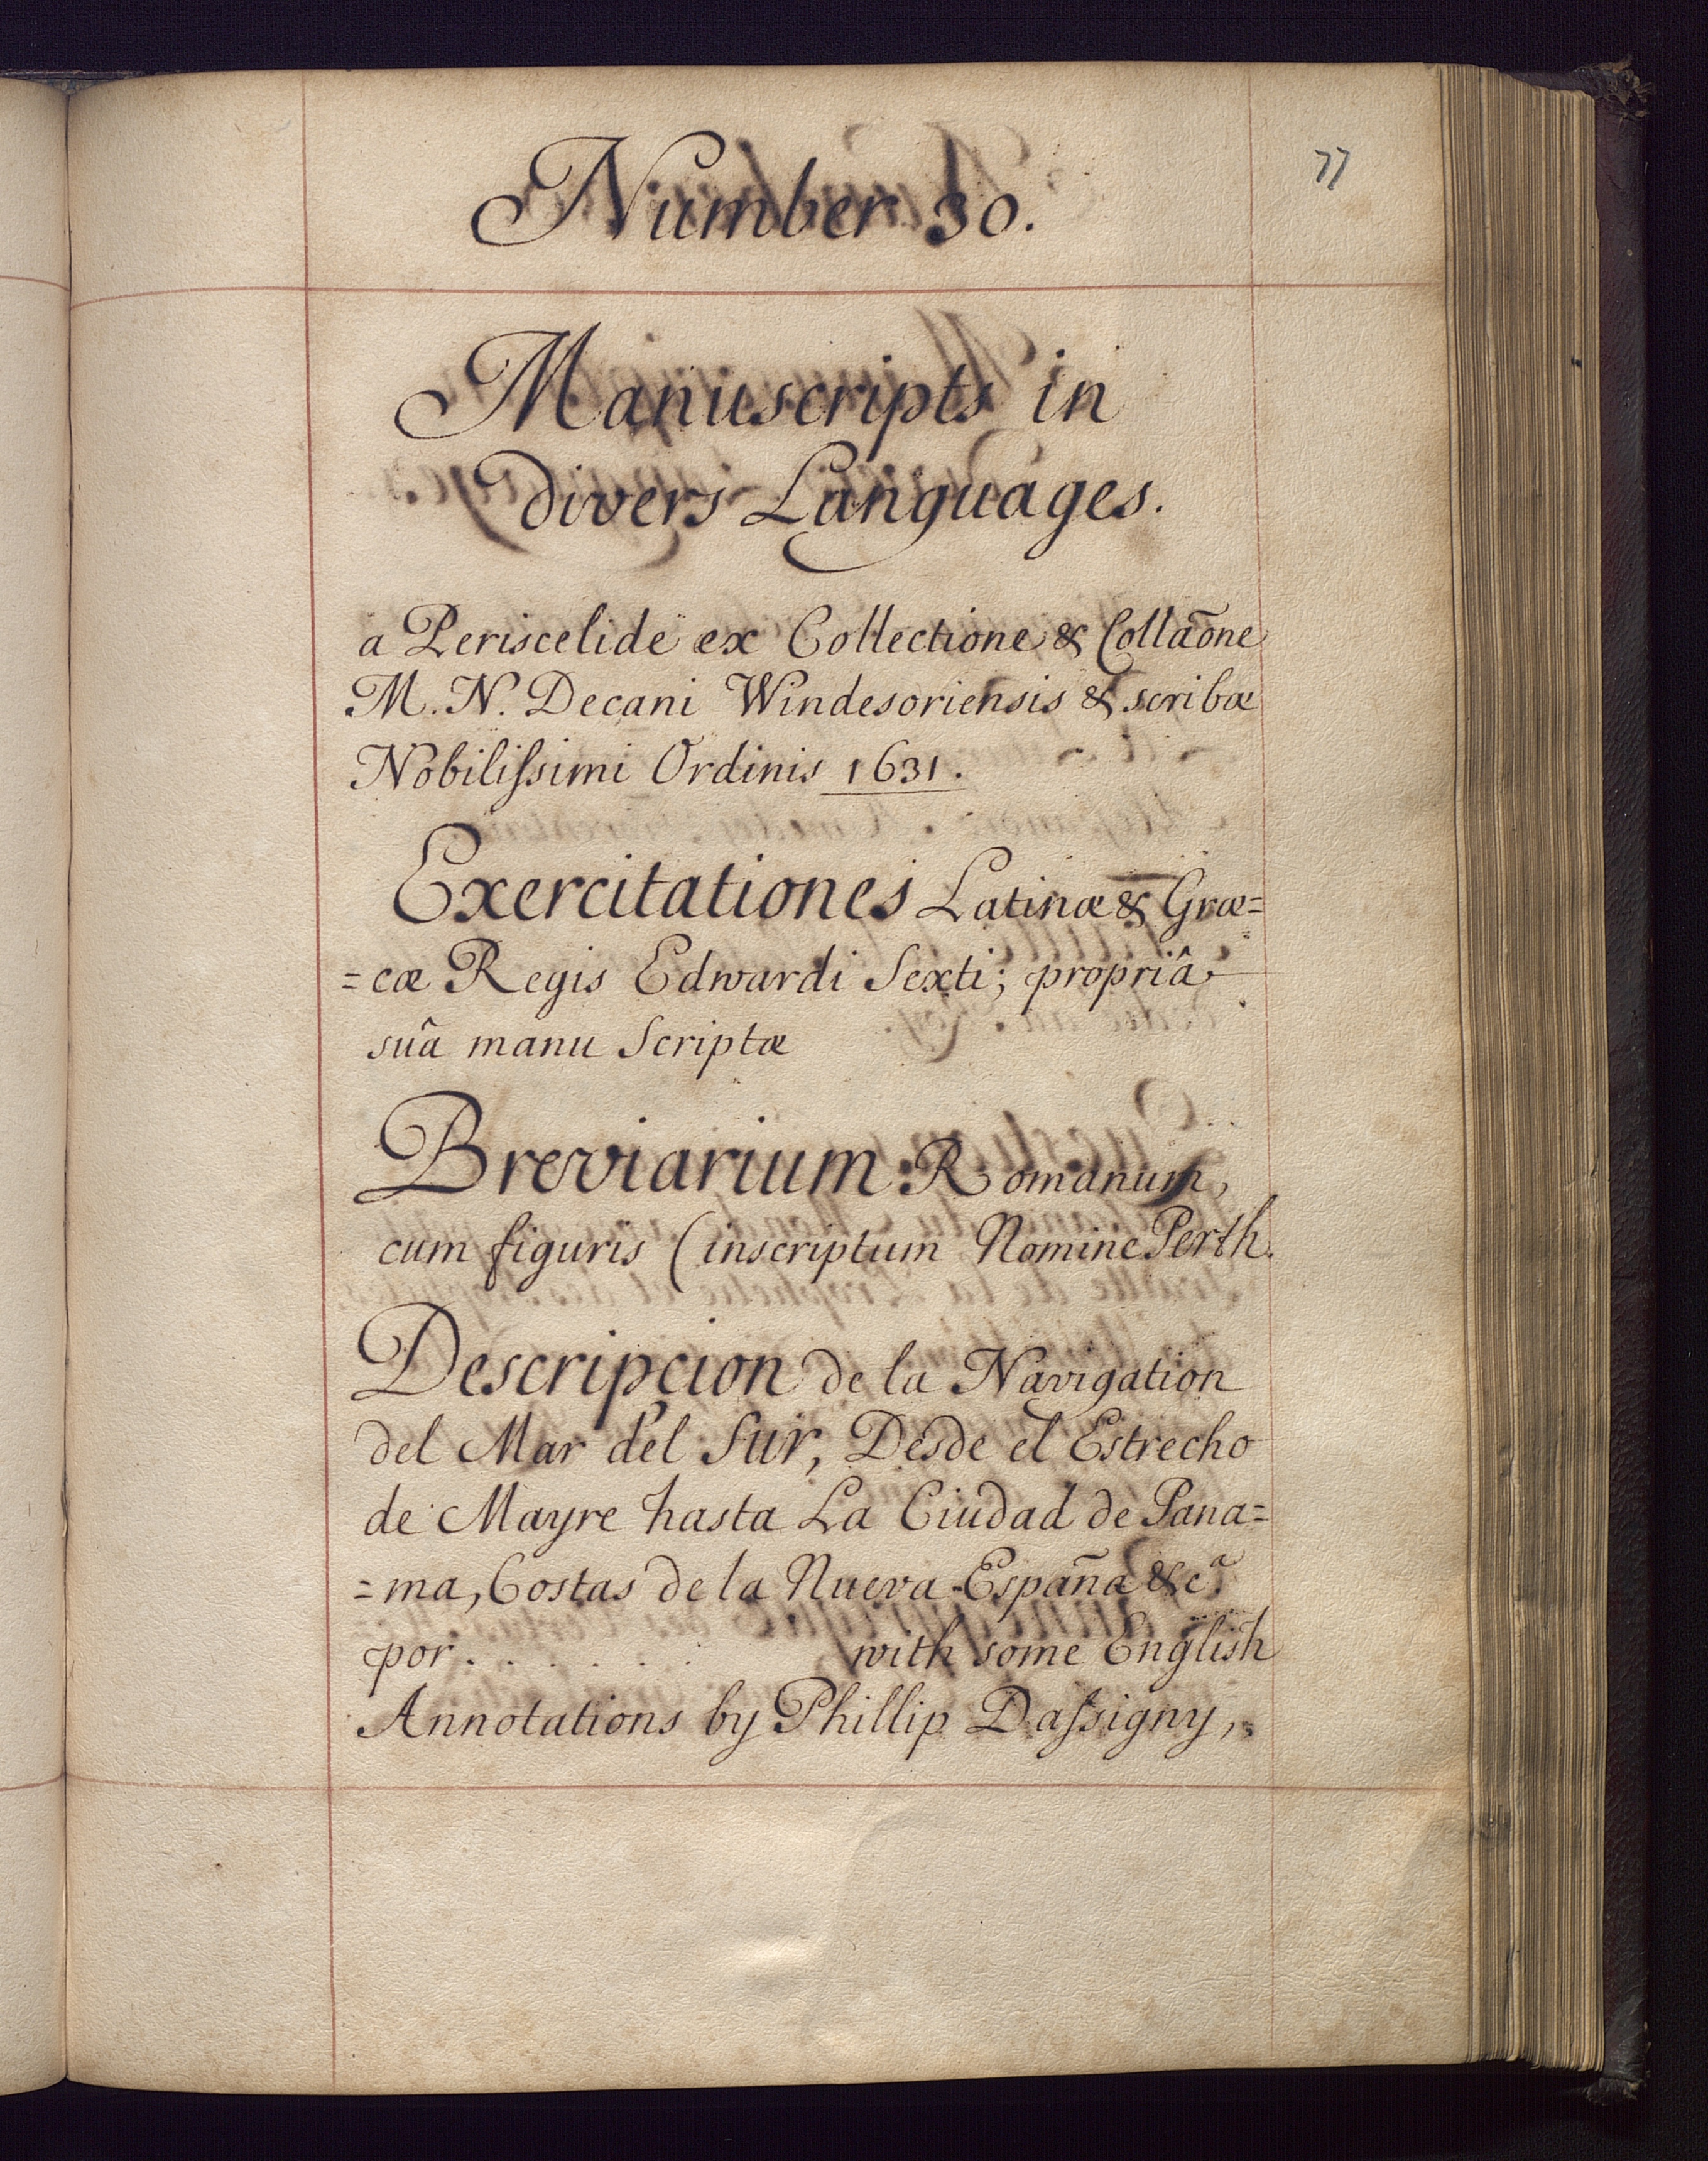 77
Number 30.
Manuscripts in
divers Languages.
a Periscelide ex Collectione & Collaõne
M. N. Decani Windesoriensis & scribæ
Nobiliſsimi Ordinis 1631.
Exercitationes Latinæ & Græ=
=cæ Regis Edwardi Sexti; propriâ
suâ manu Scriptæ
Breviarium: Romanum,
cum figuris (inscriptum Nomine Perth.
Descripcion de la Navigation
del Mar del Sur, Desde el Estrecho
de Mayre hasta La Ciudad de Pana=
=ma, Costas de la Nueva España &cª
por . . . . . . with some English
Annotations by Phillip Daſsigny,